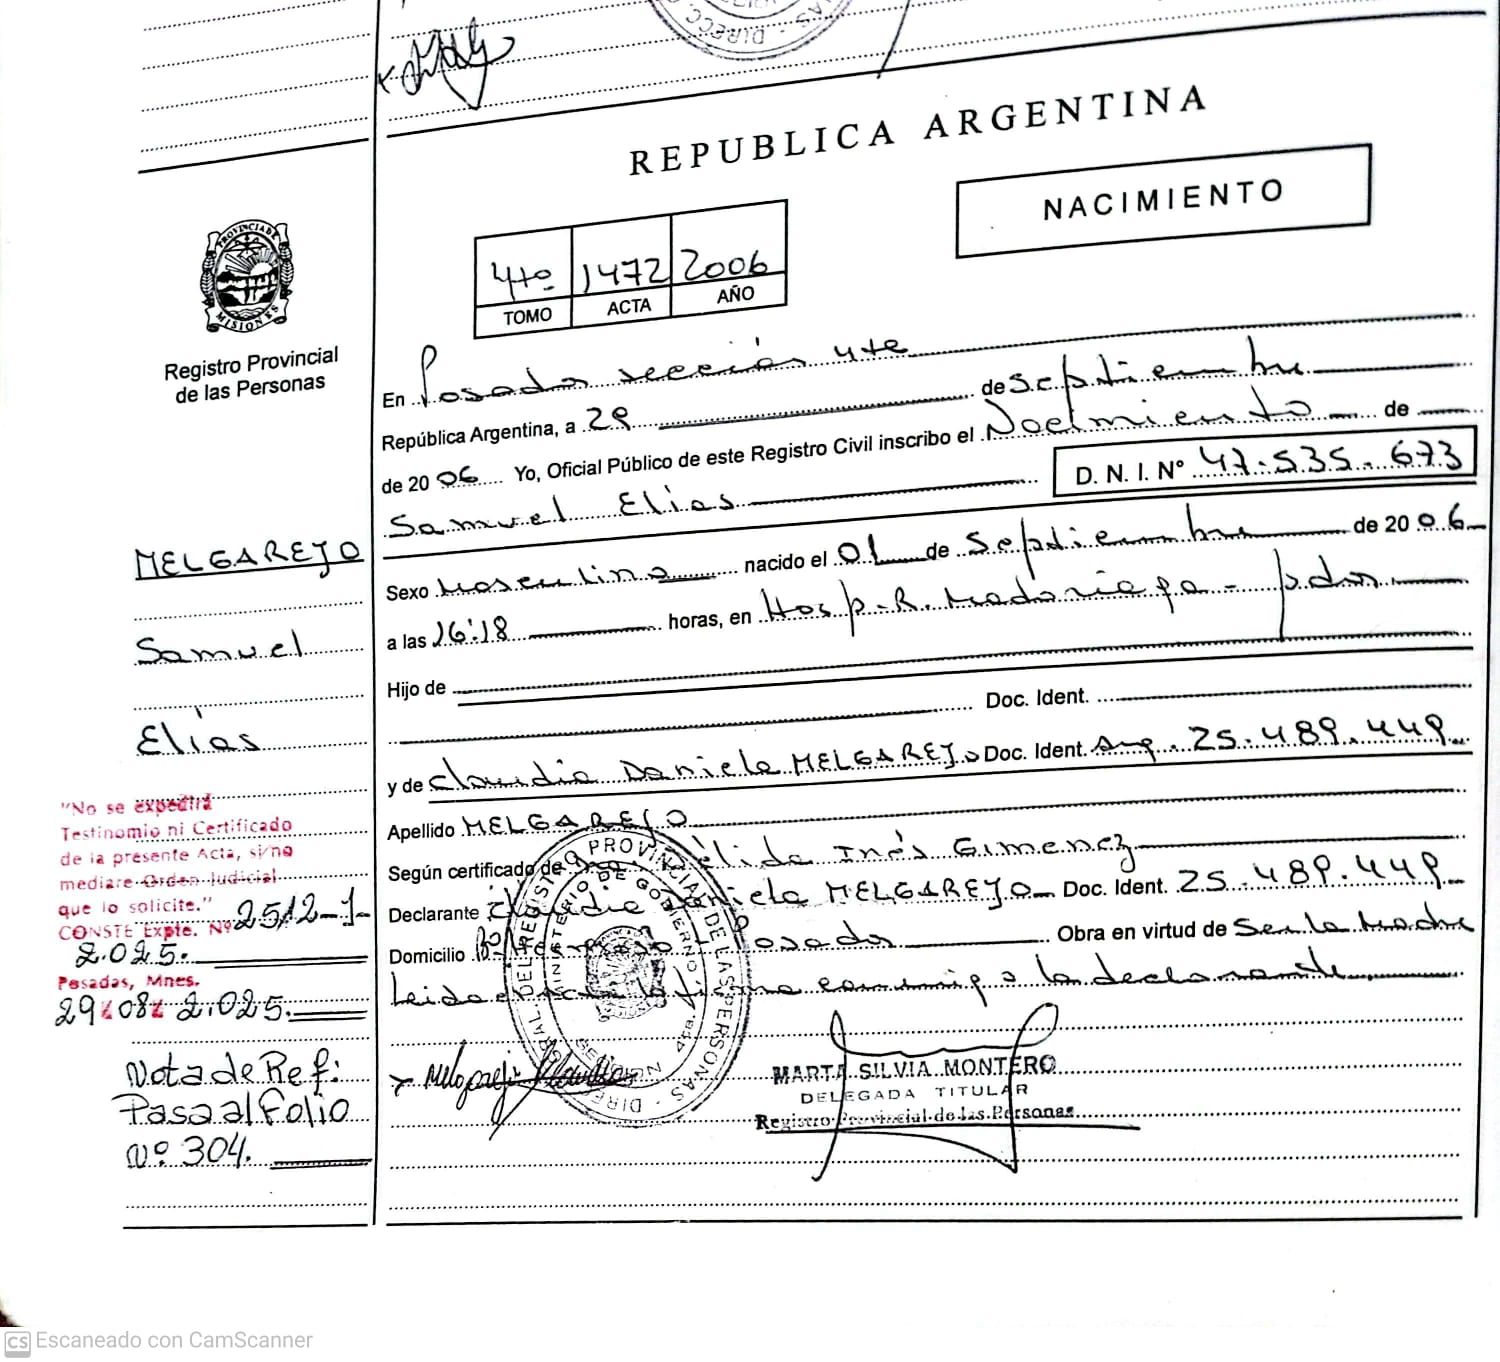 REPUBLICA ARGENTINA
NACIMIENTO
4to 1472 2006
TOMO ACTA AÑO
PROVINCIA DE MISIONES
Registro Provincial
de las Personas
En Posadas sección 4te
República Argentina, a 29 de Septiembre
de 2006 Yo, Oficial Público de este Registro Civil inscribo el Nacimiento de
D. N. I. Nº 47.535.673
Samuel Elías
Sexo Masculino nacido el 01 de Septiembre de 2006
a las 16:18 horas, en Hosp. R. Madariaga - pdas
Hijo de
Doc. Ident.
y de Claudia Daniela MELGAREJO Doc. Ident. Arg. 25.489.449
Apellido MELGAREJO
Según certificado de Elida Inés Gimenez
Declarante Claudia Daniela MELGAREJO Doc. Ident. 25.489.449
Domicilio Posadas Obra en virtud de Ser la Madre
Leida el acta la firma conmigo la declarante
Melgarejo Claudia
MARTA SILVIA MONTERO
DELEGADA TITULAR
Registro Provincial de las Personas
MELGAREJO
Samuel
Elías
"No se expedirá
Testinomio ni Certificado
de la presente Acta, si/no
mediare Orden Judicial
que lo solicite."
CONSTE Expte. Nº 2512-J-
2.025.
Posadas, Mnes.
29/08/2.025.
Nota de Ref:
Pasa al Folio
Nº 304.
CS Escaneado con CamScanner